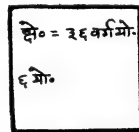 क्षे० = ३६ वर्ग मो०
६ मो०